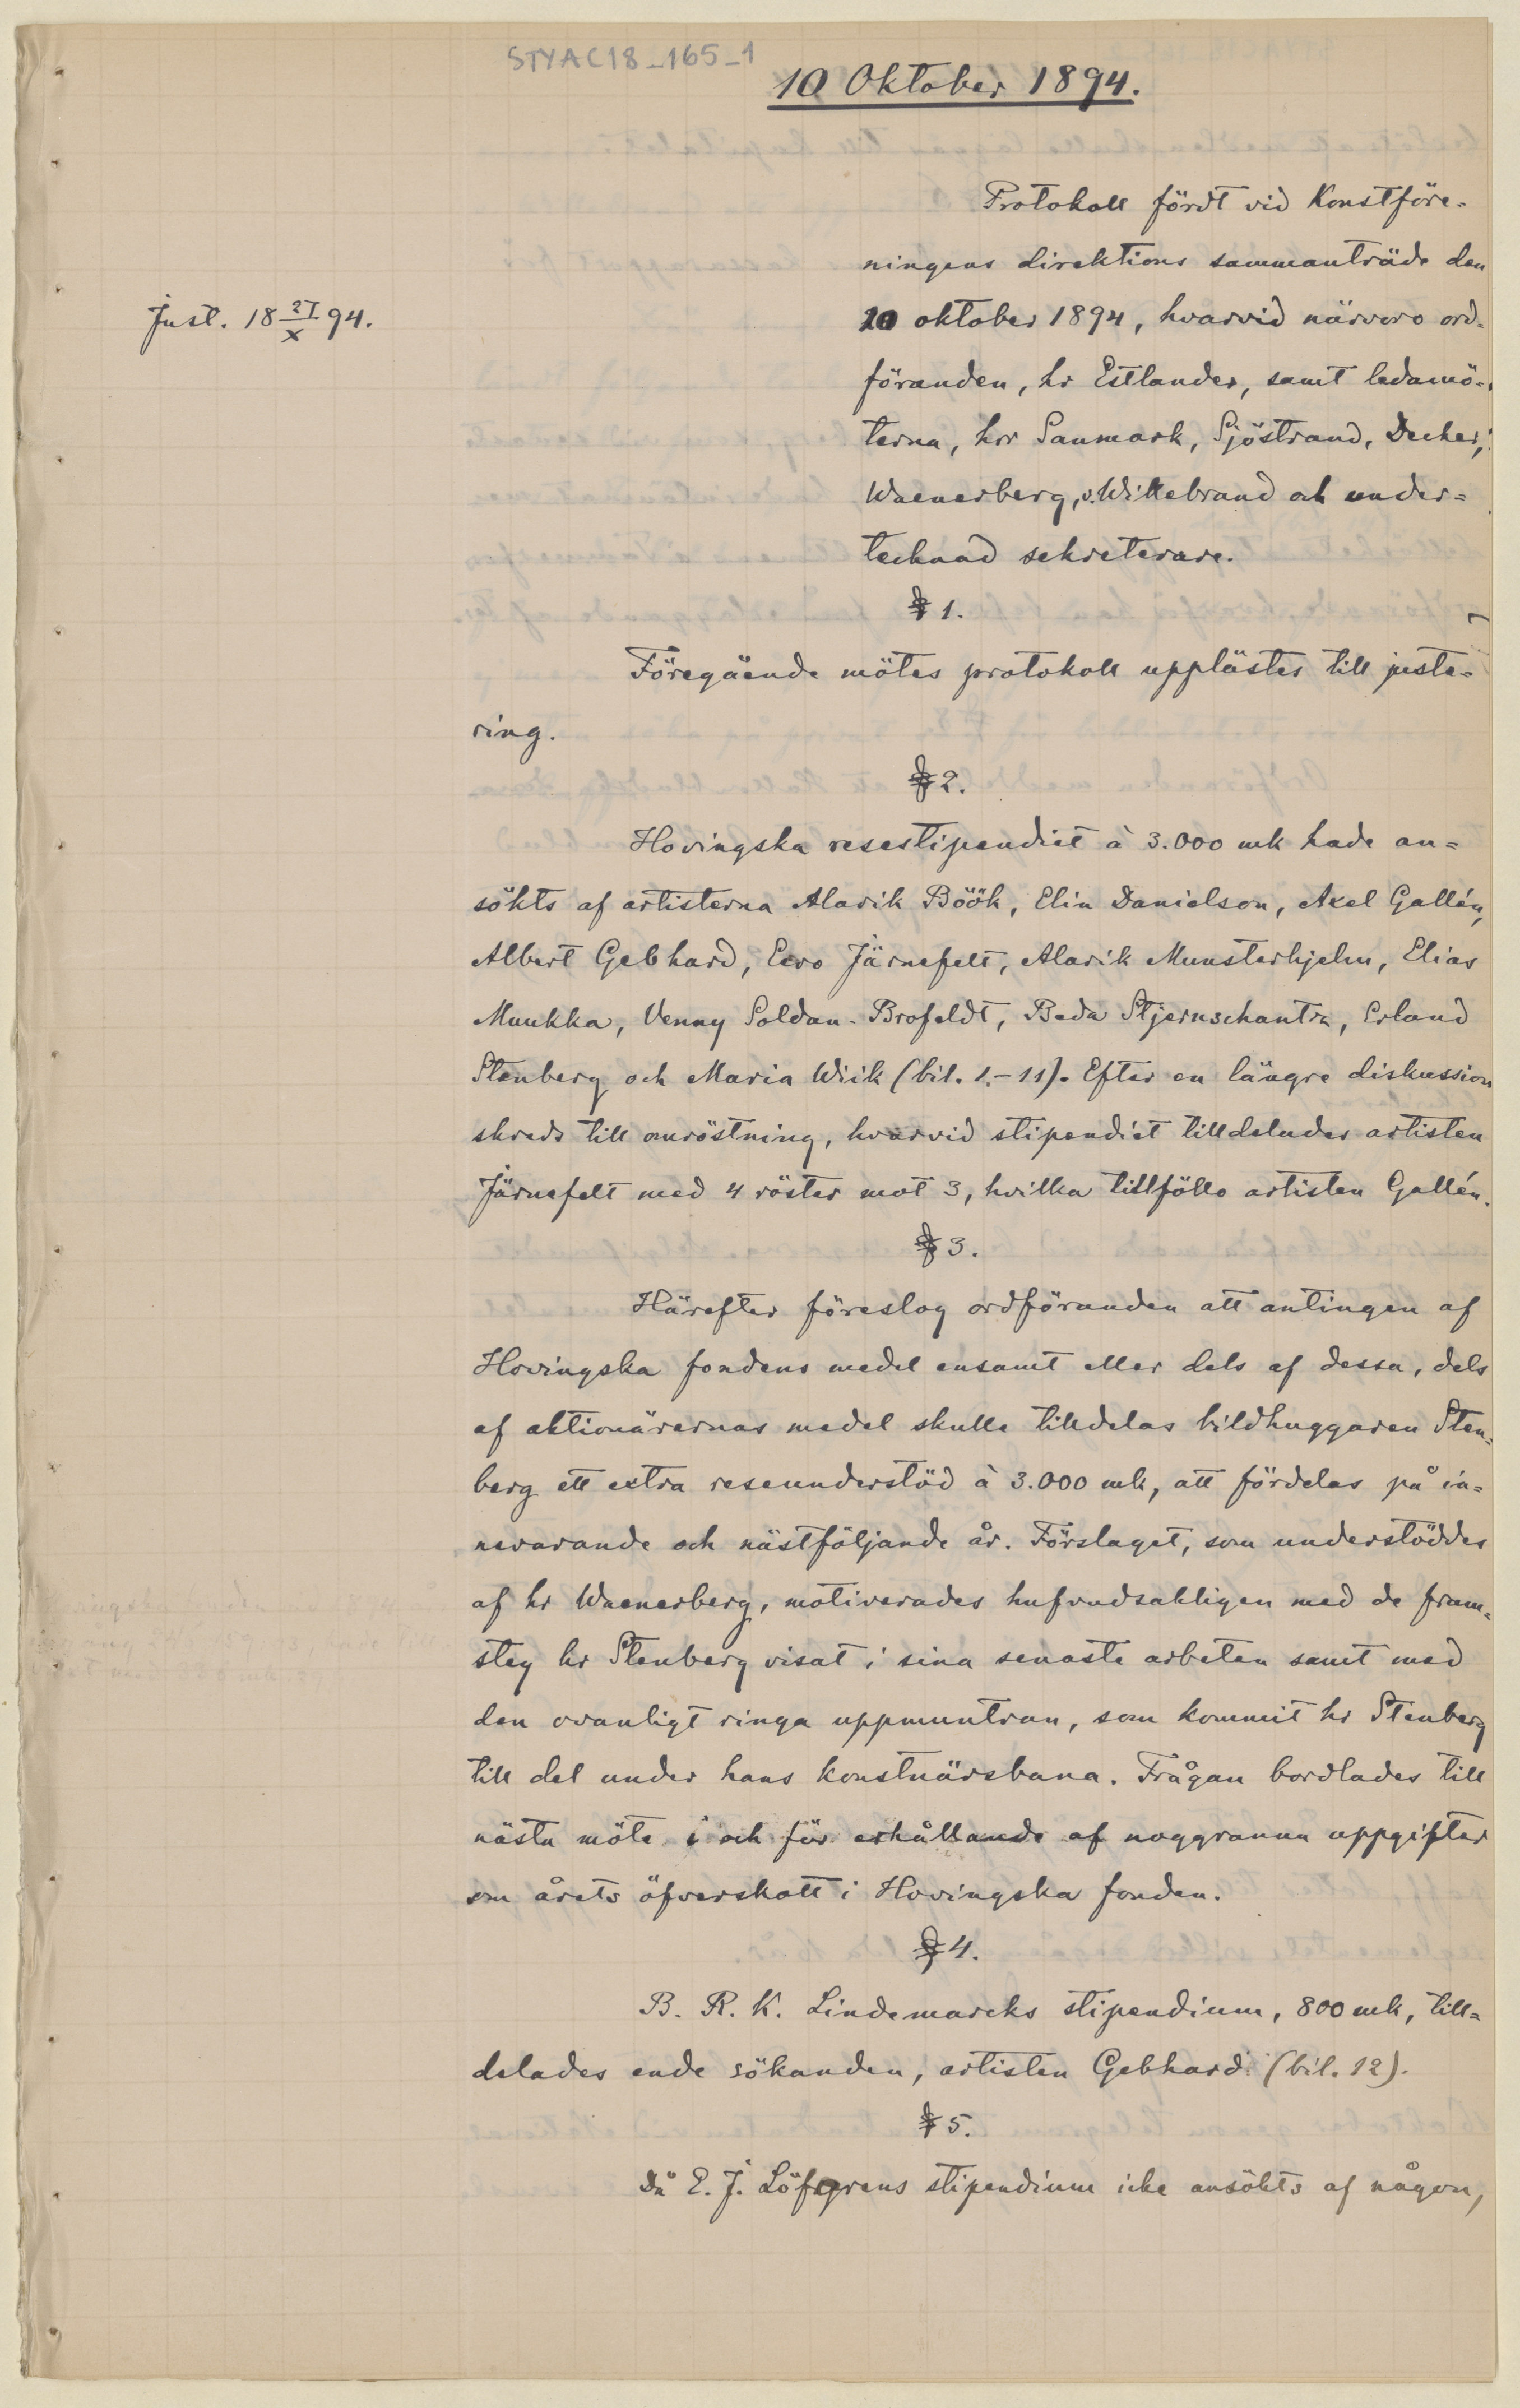 STYAC18_165_1
10 Oktober 1894.
Protokoll fördt vid Konstföre-
ningens direktions sammanträde den
Just. 18 21/X 94.
10 oktober 1894, hvarvid närvoro ord-
föranden, hr Estlander, samt ledamö-
terna, hrr Sanmark, Sjöstrand, Decker,
Waenerberg, v. Willebrand och under-
tecknad sekreterare.
§ 1.
Föregående mötes protokoll upplästes till juste-
ring.
§ 2.
Hovingska resestipendiet à 3.000 mk hade an-
sökts af artisterna Alarik Böök, Elin Danielson, Axel Gallén,
Albert Gebhard, Eero Järnefelt, Alarik Munsterhjelm, Elias
Muukka, Venny Soldan-Brofeldt, Beda Stjernschantz, Erland
Stenberg och Maria Wiik (bil. 1.-11). Efter en längre diskussion
skreds till omröstning, hvarvid stipendiet tilldelades artisten
Järnefelt med 4 röster mot 3, hvilka tillföllo artisten Gallén.
§ 3.
Härefter föreslog ordföranden att antingen af
Hovingska fondens medel ensamt eller dels af dessa, dels
af aktionärernas medel skulle tilldelas bildhuggaren Sten-
berg ett extra reseunderstöd à 3.000 mk, att fördelas på in-
nevarande och nästföljande år. Förslaget, som understöddes
af hr Waenerberg, motiverades hufvudsakligen med de fram-
steg hr Stenberg visat i sina senaste arbeten samt med
den ovanligt ringa uppmuntran, som kommit hr Stenberg
till del under hans konstnärsbana. Frågan bordlades till
nästa möte i och för erhållande af noggranna uppgifter
om årets öfverskott i Hovingska fonden.
§ 4.
B. R. K. Lindemarcks stipendium, 800 mk, till-
delades ende sökanden, artisten Gebhard (bil. 12).
§ 5.
Då E. J. Löfgrens stipendium icke ansökts af någon,